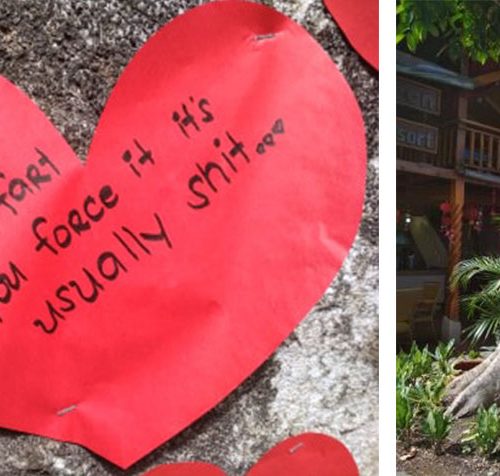 fart
ou force it it's
usually shit...
en
sort